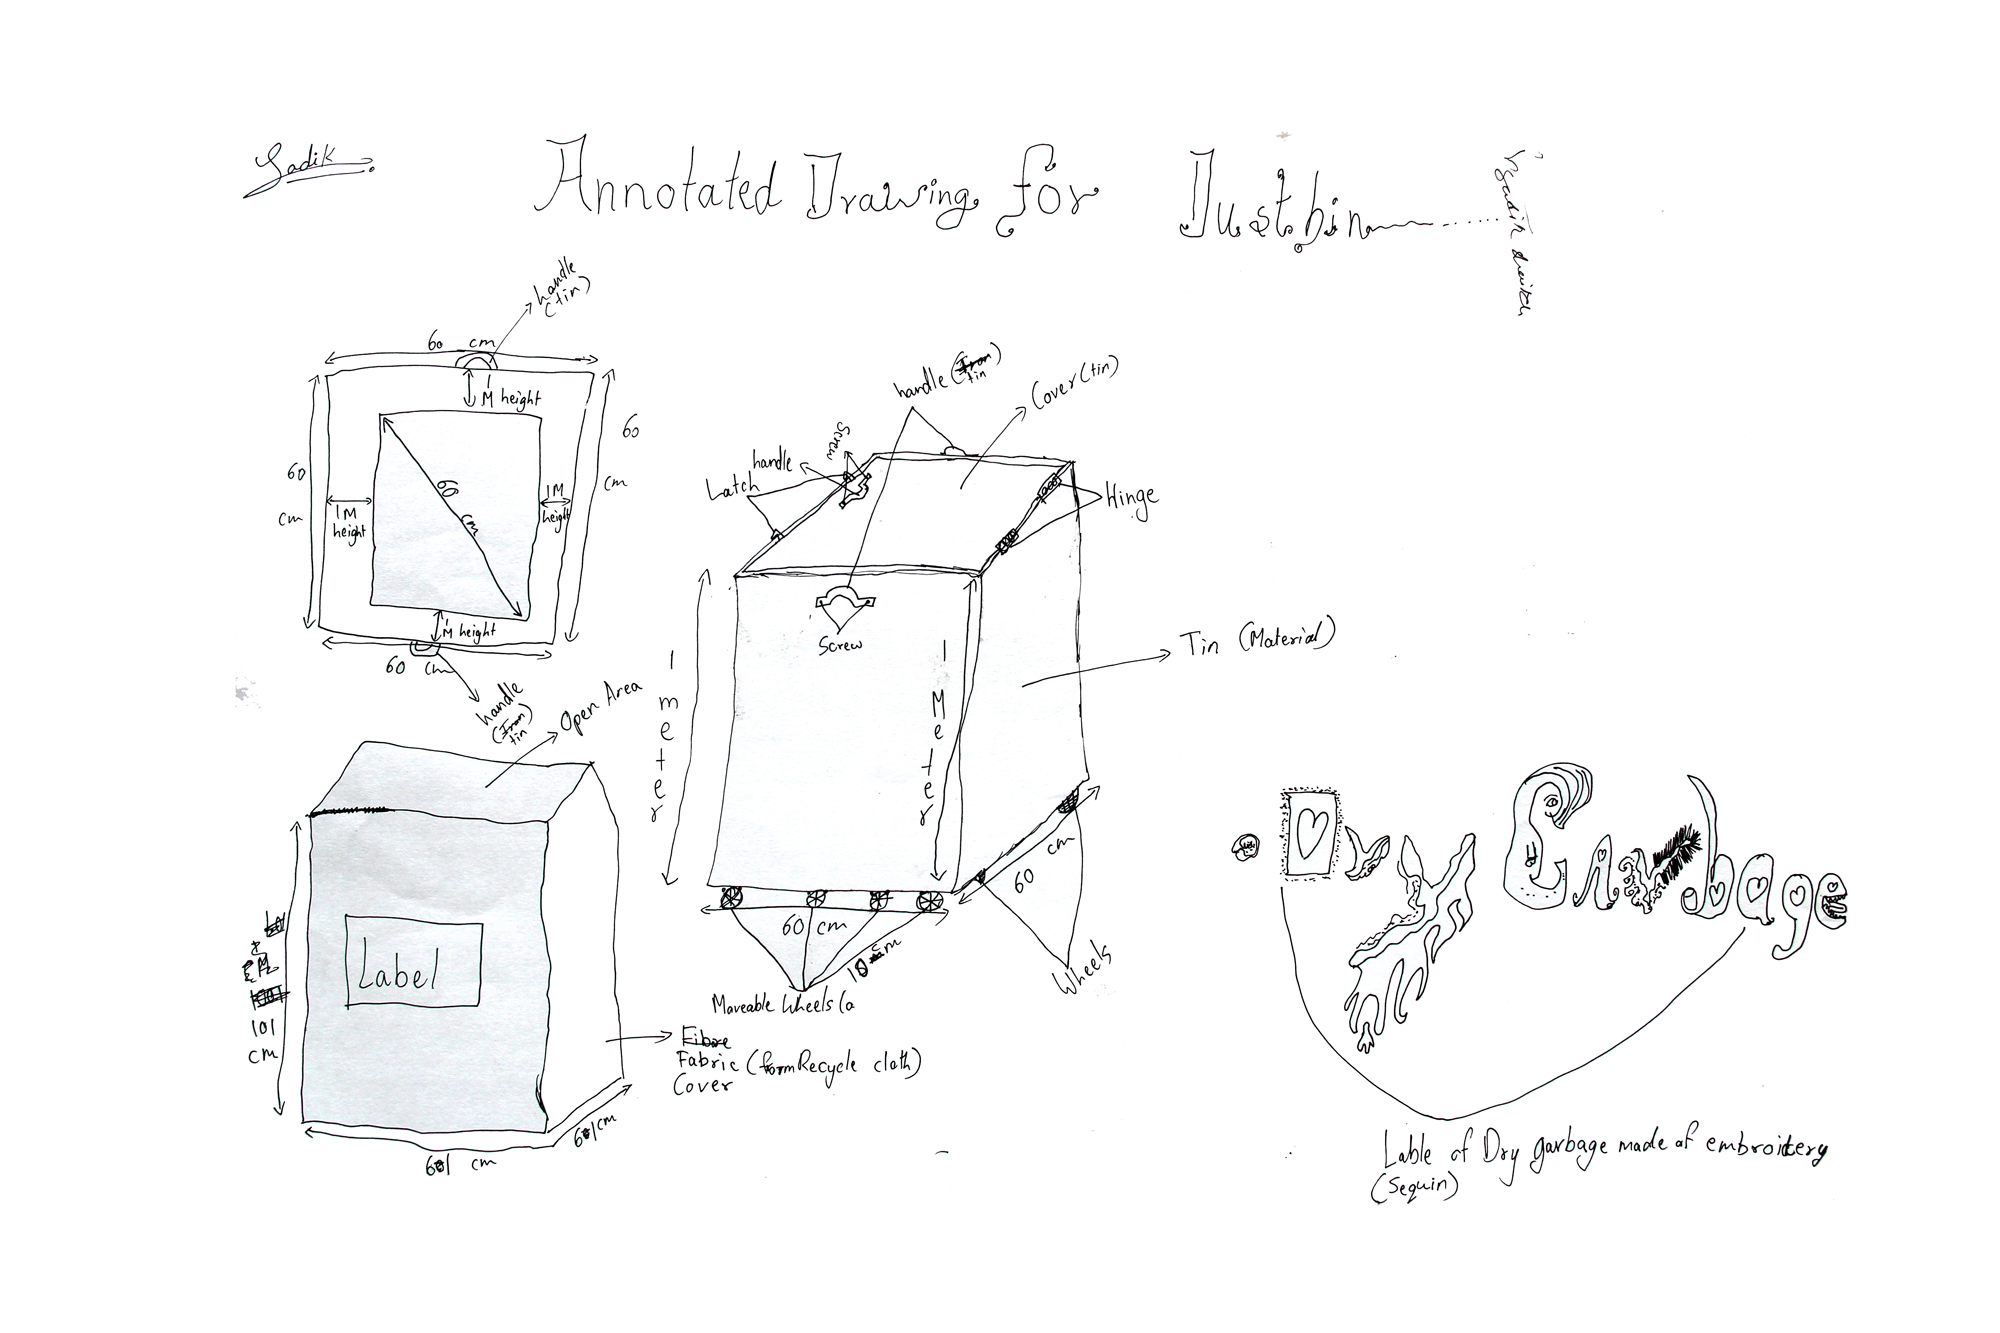 Sadik
Annotated Drawing for Dustbin
handle
(tin)
60 cm
1
M height
60
cm
60
cm
1M
height
60 cm
1M
height
1
M height
60 cm
handle
(Iron)
tin
Open Area
Label
101
cm
601 cm
61cm
Fibre
Fabric (formRecycle cloth)
Cover
handle (Iron)
tin
Cover(tin)
Screw
handle
Latch
Hinge
Screw
1 meter
1 Meter
Tin (Material)
60 cm
60 cm
10 cm
Wheels
Maveable Wheels (a
Dry Garbage
Lable of Dry garbage made of embroidery
(Sequin)